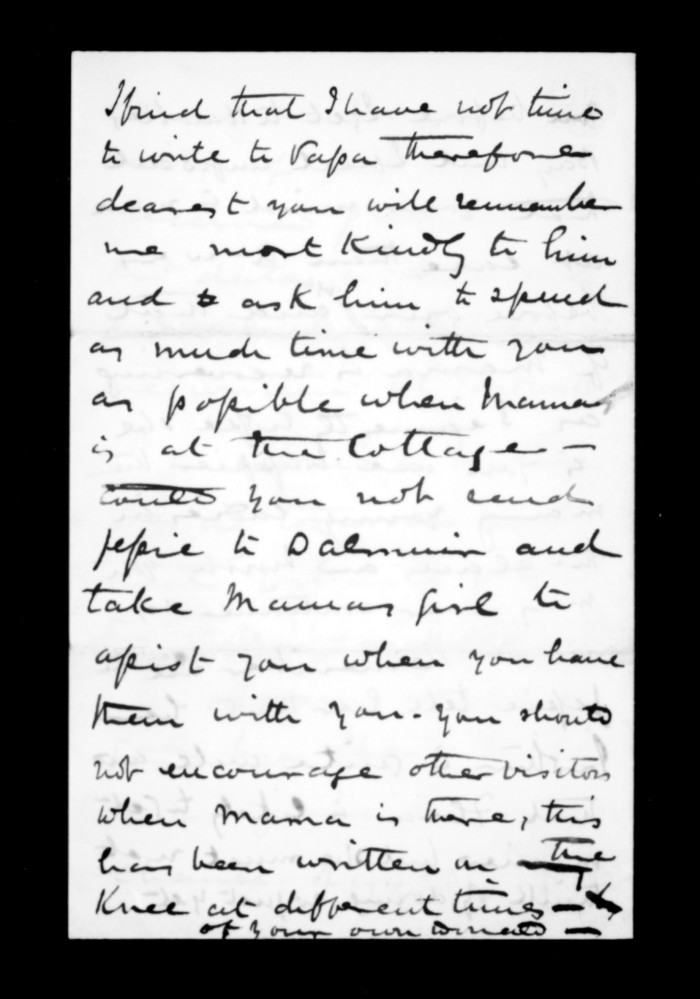 I find that I have not time
to write to Papa therefore
dearest you will remember
me most kindly to him
and to ask him to spend
as much time with you
as possible when Mama
is at the Cottage —
could you not send
Jessie to Dalmuir and
take Mamas girl to
assist you when you have
them with you - you should
not encourage other visitors
when Mama is there, this
has been written on the
Knee at different times —
of your own